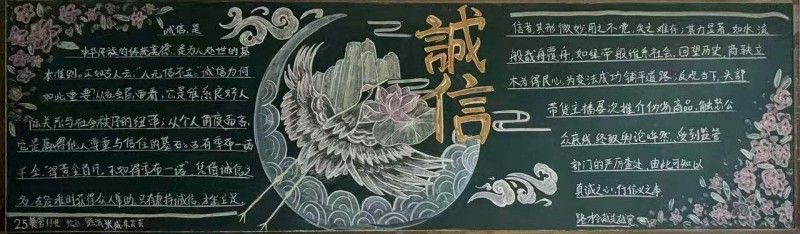 诚信,是
中华民族的传统美德,是为人处世的基
本准则,正如古人云:"人无信不立"诚信为何
如此重要?从社会层面看,它是维系良好人
际关系与社会秩序的纽带;从个人角度而言,
它是赢得他人尊重与信任的基石;古有季布一诺
千金,"得黄金百斤,不如得季布一诺",凭借诚信之
名,在危难时获得众人帮助,只有秉持诚信,才能立足
25
誠信
信者其形微妙,用之不觉,失之难存;其力显著,如水流
般载舟覆舟,如纽带般维系社会,回望历史,商鞅立
木为得民心,为变法成功铺平道路;反观当下,头部
带货主播屡次推介伪劣商品,触怒公
众底线,终被舆论哗然,受到监管
部门的严厉查处,由此可知以
真诚之心,行信义之事